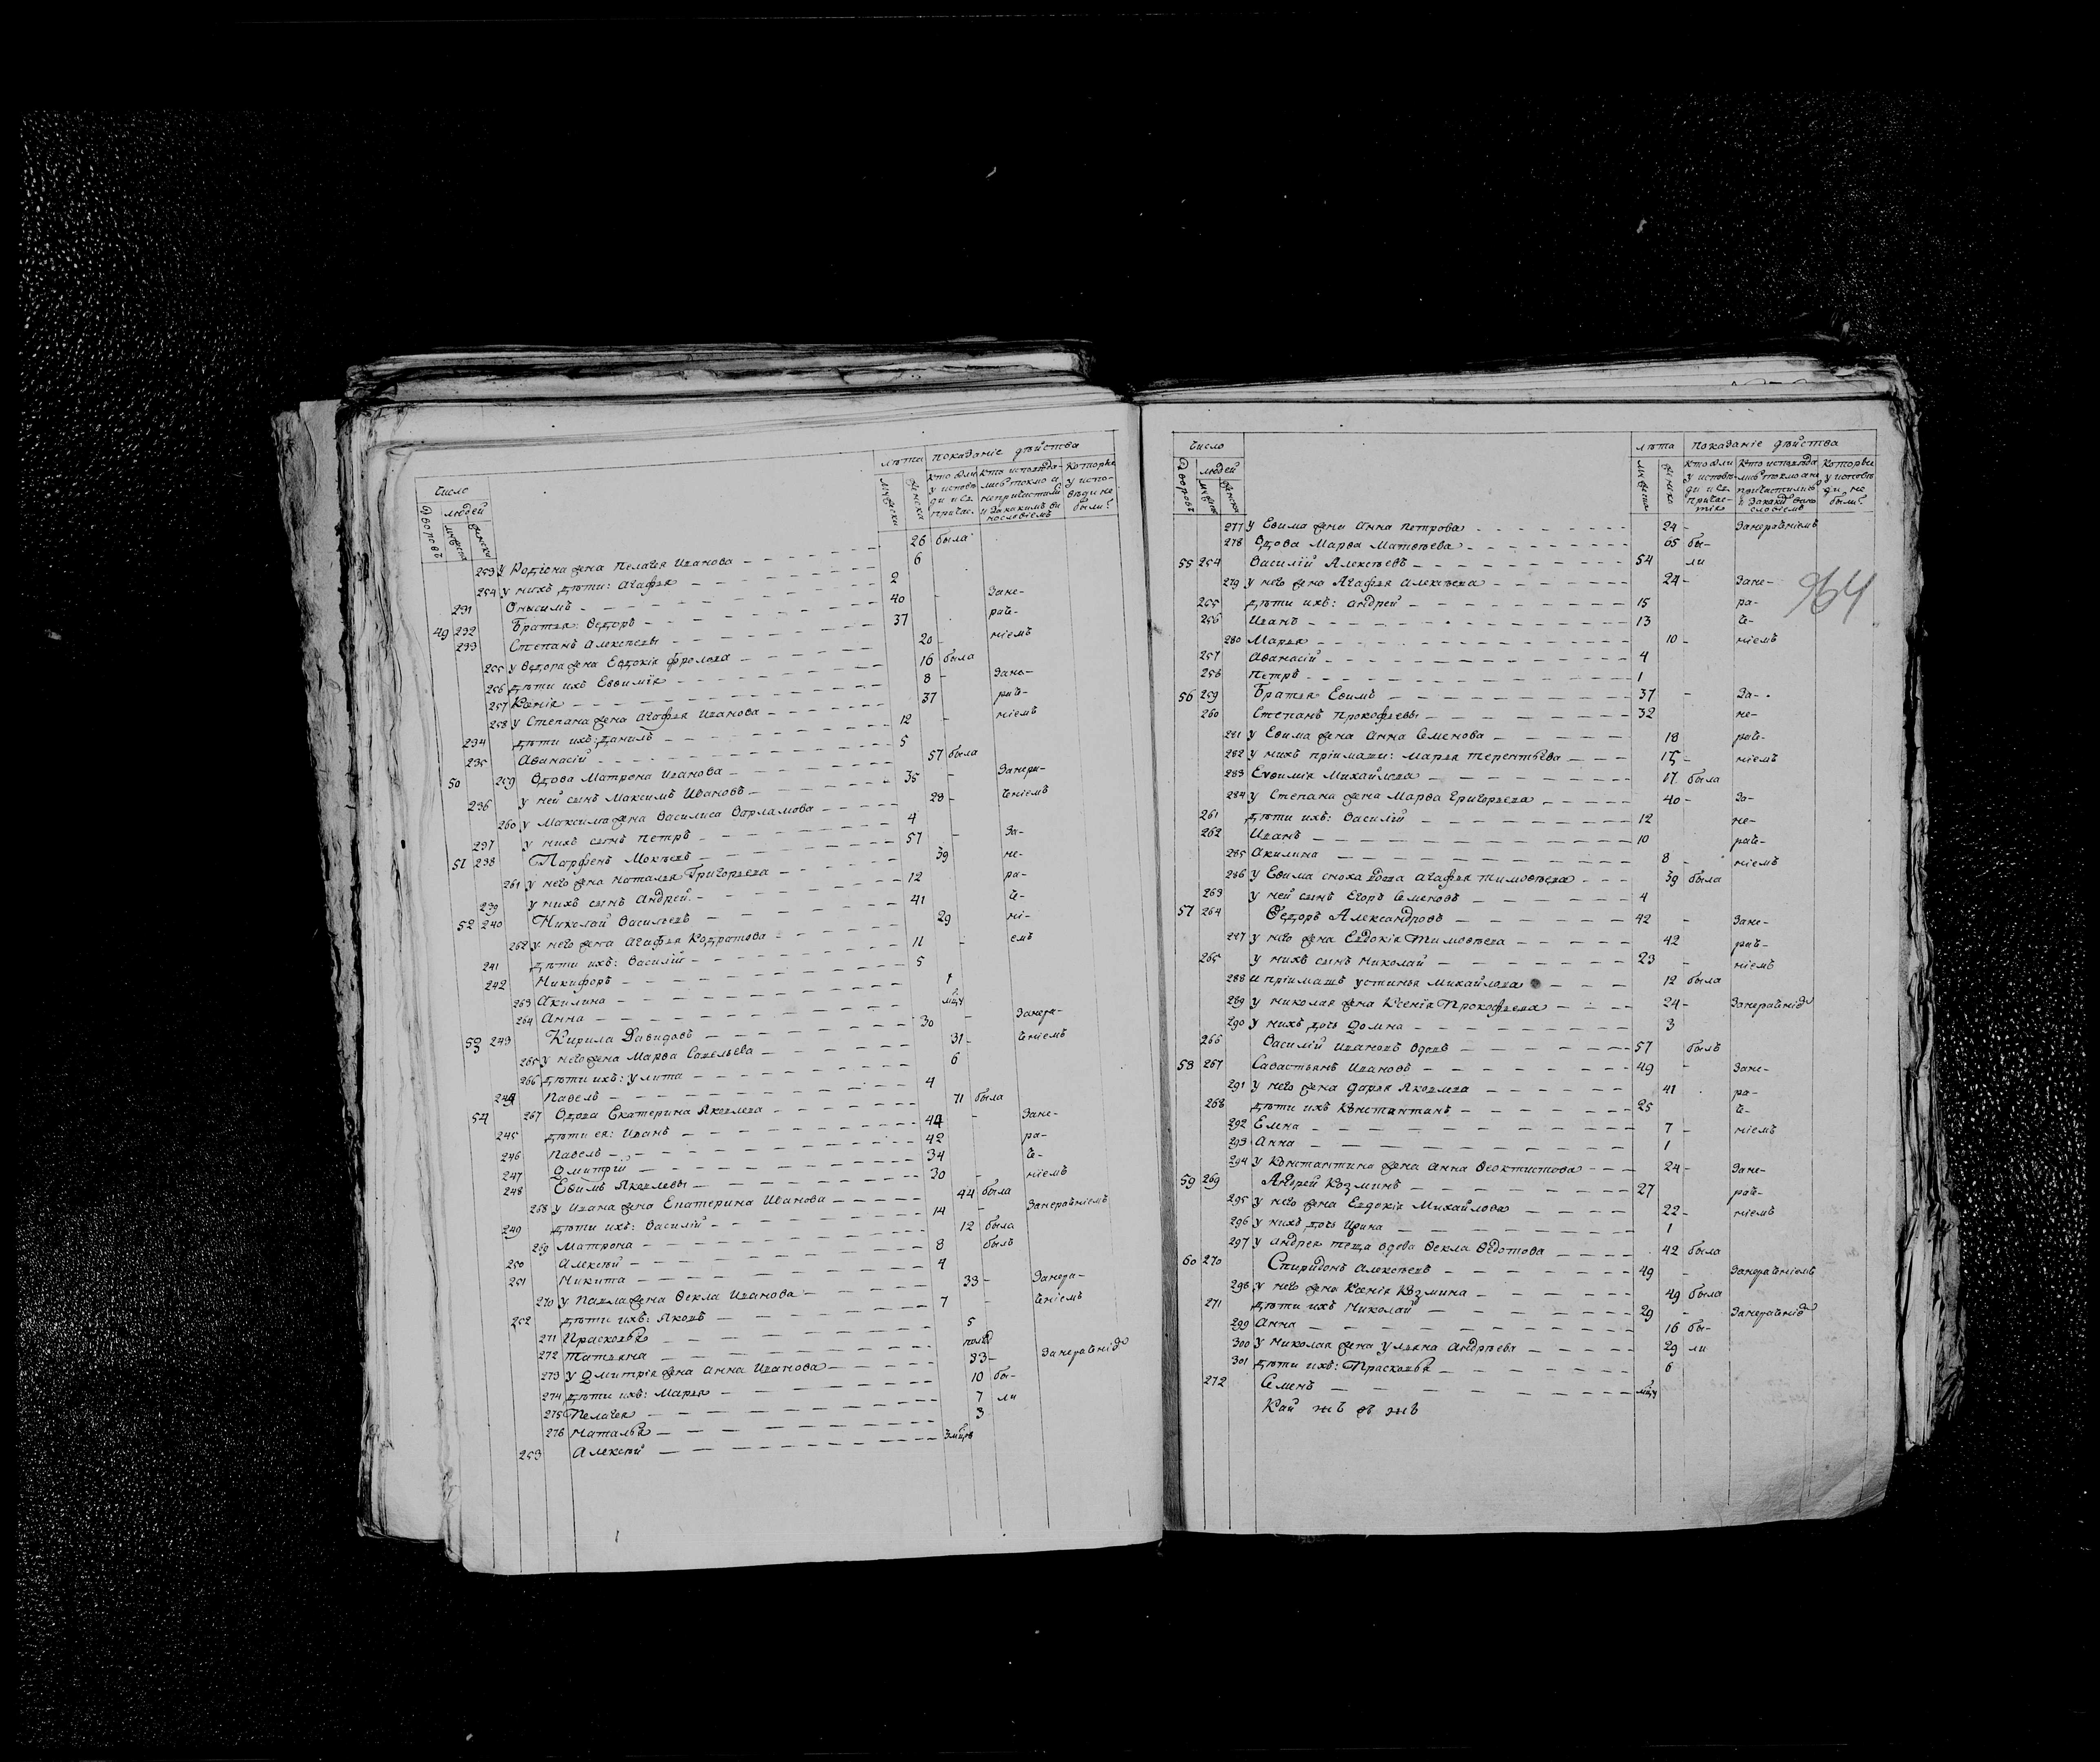 Число
лѣта показаніе дѣйства
Дворовъ
людей
мужеска
женска
мужеска
женска
кто были у исповѣди и св. причас.
кто исповѣдались токмо а непричастились и за какимъ винословіемъ
которые у исповѣди не были?
253 У Родіона жена Пелагея Иванова 26 была
254 у нихъ дѣти: Агафья 6
231 Онисимъ 2
49 232 Братья: Ѳедоръ 40 - Зане-
233 Степанъ Алексѣевы 37 раче-
255 у Ѳедора жена Евдокія Фролова 20 - ніемъ
256 дѣти ихъ Евѳимія 16 была
257 Ксенія 8 - Зане-
258 у Степана жена Агафья Иванова 37 раче-
234 дѣти ихъ: Данилъ 12 ніемъ
235 Аѳанасій 5
50 259 Вдова Матрона Иванова 57 была
236 у ней сынъ Максимъ Ивановъ 35 - Занера-
260 у Максима жена Василиса Варламова 28 - ченіемъ
237 у нихъ сынъ Петръ 4
51 238 Парфенъ Мокѣевъ 57 - За-
261 у него жена Наталья Григорьева 39 не-
239 у нихъ сынъ Андрей 12 ра-
52 240 Николай Васильевъ 41 че-
262 у него жена Агафья Кодратова 29 ні-
241 дѣти ихъ: Василій 11 - емъ
242 Никифоръ 5
263 Акилина 1
264 Анна мцу
53 243 Кирила Давидовъ 30 - Занера-
265 у него жена Марѳа Савельева 31 - ченіемъ
266 дѣти ихъ: Улита 6
244 Павелъ 4
54 267 Вдова Екатерина Яковлева 71 была
245 дѣти ея: Иванъ 44 - Зане-
246 Павелъ 42 ра-
247 Дмитрій 34 че-
248 Евѳимъ Яковлевы 30 - ніемъ
268 у Ивана жена Екатерина Иванова 44 была
249 дѣти ихъ: Василій 14 - Занераченіемъ
269 Матрона 12 была
250 Алексѣй 8 былъ
251 Никита 4
270 у Павла жена Ѳекла Иванова 33 - Занера-
252 дѣти ихъ: Яковъ 7 - ченіемъ
271 Прасковья 5
272 Татьяна
273 у Дмитрія жена Анна Иванова 33 - Занераченіе
274 дѣти ихъ: Марья 10 бы-
275 Пелагея 7 ли
276 Наталья 3
253 Алексѣй
Число
лѣта показаніе дѣйства
Дворовъ
людей
мужеска
женска
мужеска
женска
кто были у исповѣди и св. причастія
кто исповѣдались токмо а не причастились и за какимъ винословіемъ
которые у исповѣди не были?
964
277 у Евѳима жена Анна Петрова 24 - Занераченіемъ
278 Вдова Марѳа Матвѣева 65 бы-
55 254 Василій Алексѣевъ 54 ли
279 у него жена Агафья Алексѣева 24 - Зане-
255 дѣти ихъ: Андрей 15 ра-
256 Иванъ 13 че-
280 Марья 10 - ніемъ
257 Аѳанасій 4
258 Петръ 1
56 259 Братья Евѳимъ 37 - За-
260 Степанъ Прокофьевы 32 не-
281 у Евѳима жена Анна Семенова 18 раче-
282 у нихъ пріимаши: Марья Терентьева 15 - ніемъ
283 Евѳимія Михайлова 17 была
284 у Степана жена Марѳа Григорьева 40 - За-
261 дѣти ихъ: Василій 12 не-
262 Иванъ 10 раче-
285 Акилина 8 - ніемъ
286 у Евѳима сноха вдова Агафья Тимоѳѣева 39 была
263 у ней сынъ Егоръ Семеновъ 4
57 264 Ѳедоръ Александровъ 42 - Зане-
287 у него жена Евдокія Тимоѳѣева 42 раче-
265 у нихъ сынъ Николай 23 - ніемъ
288 и пріимашъ Устинья Михайлова 12 была
289 у Николая жена Ксенія Прокофьева 24 - Занераченіе
290 у нихъ дочь Домна 3
266 Василій Ивановъ вдовъ 57 былъ
58 267 Савастьянъ Ивановъ 49 - Зане-
291 у него жена Дарья Яковлева 41 ра-
268 дѣти ихъ Константинъ 25 че-
292 Елена 7 - ніемъ
293 Анна 1
294 у Константина жена Анна Ѳеоктистова 24 - Зане-
59 269 Андрей Козминъ 27 раче-
295 у него жена Евдокія Михайлова 22 - ніемъ
296 у нихъ дочь Ирина 1
297 у Андрея теща вдова Ѳекла Ѳедотова 42 была
60 270 Спиридонъ Алексѣевъ 49 - Занераченіемъ
298 у него жена Ксенія Козмина 49 была
271 дѣти ихъ Николай 29 - Занераченіе
299 Анна 16 бы-
300 у Николая жена Ульяна Андрѣева 29 ли
301 дѣти ихъ: Прасковья 6
272 Семенъ мцу